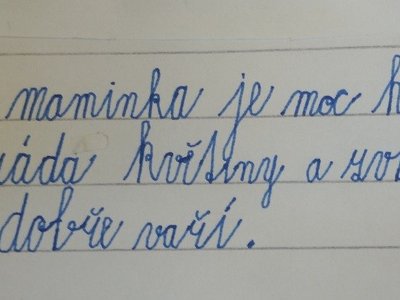 maminka je moc
ráda květiny a
dobře vaří.